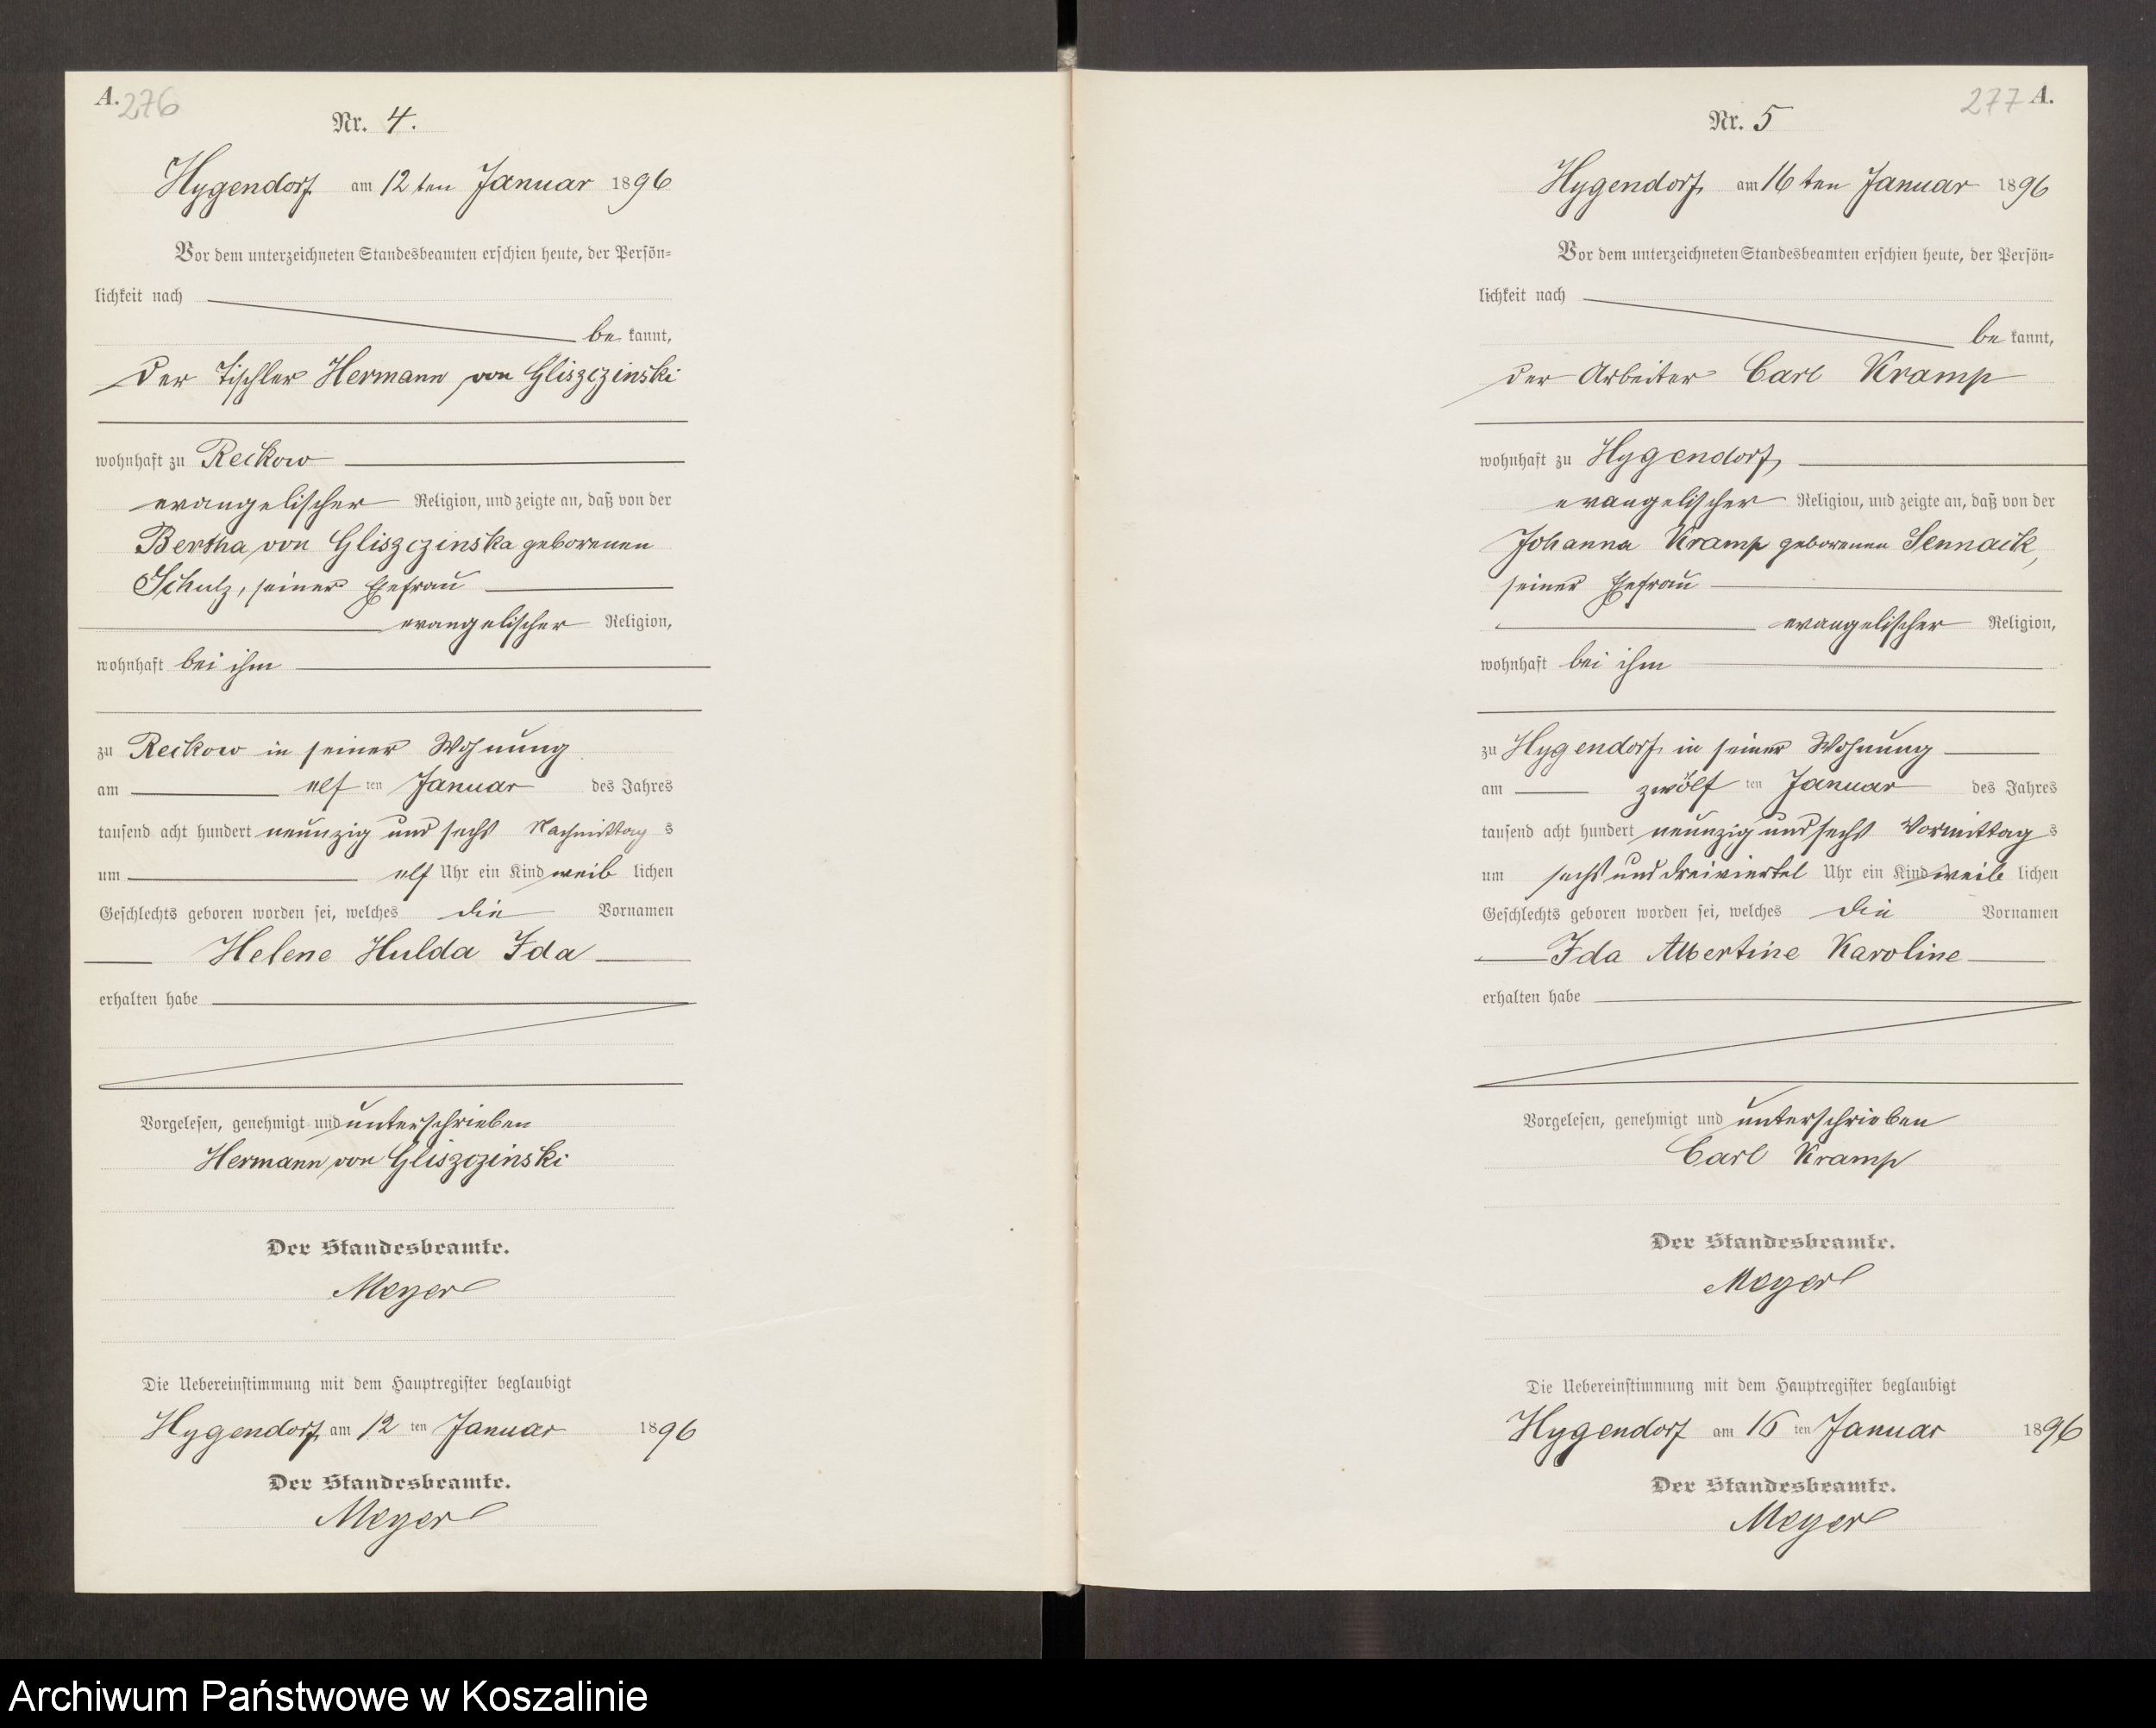 A. 276
Nr. 4.
Hygendorf am 12 ten Januar 1896
Vor dem unterzeichneten Standesbeamten erschien heute, der Persön=
lichkeit nach
be kannt,
der Tischler Hermann von Gliszczinski
wohnhaft zu Reckow
evangelischer Religion, und zeigte an, daß von der
Bertha von Gliszczinska geborenen
Schulz, seiner Ehefrau
evangelischer Religion,
wohnhaft bei ihm
zu Reckow in seiner Wohnung
am elf ten Januar des Jahres
tausend acht hundert neunzig und sechs Nachmittag s
um elf Uhr ein Kind weib lichen
Geschlechts geboren worden sei, welches die Vornamen
Helene Hulda Ida
erhalten habe
Vorgelesen, genehmigt und unterschrieben
Hermann von Gliszczinski
Der Standesbeamte.
Meyer
Die Uebereinstimmung mit dem Hauptregister beglaubigt
Hygendorf am 12 ten Januar 1896
Der Standesbeamte.
Meyer
277 A.
Nr. 5
Hygendorf am 16 ten Januar 1896
Vor dem unterzeichneten Standesbeamten erschien heute, der Persön=
lichkeit nach
be kannt,
der Arbeiter Carl Kramp
wohnhaft zu Hygendorf
evangelischer Religion, und zeigte an, daß von der
Johanna Kramp geborenen Sennack,
seiner Ehefrau
evangelischer Religion,
wohnhaft bei ihm
zu Hygendorf in seiner Wohnung
am zwölf ten Januar des Jahres
tausend acht hundert neunzig und sechs Vormittag s
um sechs und dreiviertel Uhr ein Kind weib lichen
Geschlechts geboren worden sei, welches die Vornamen
Ida Albertine Karoline
erhalten habe
Vorgelesen, genehmigt und unterschrieben
Carl Kramp
Der Standesbeamte.
Meyer
Die Uebereinstimmung mit dem Hauptregister beglaubigt
Hygendorf am 16 ten Januar 1896
Der Standesbeamte.
Meyer
Archiwum Państwowe w Koszalinie